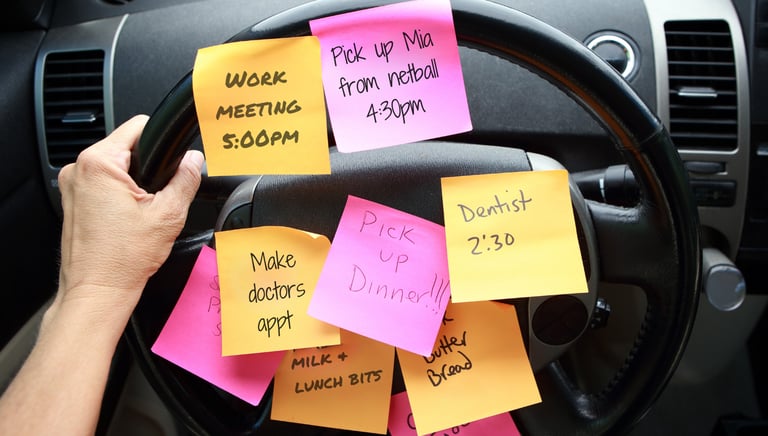 WORK
MEETING
5:00PM
Pick up Mia
from netball
4:30pm
Dentist
2:30
Pick
up
Dinner!!!
Make
doctors
appt
MILK &
LUNCH BITS
Butter
Bread